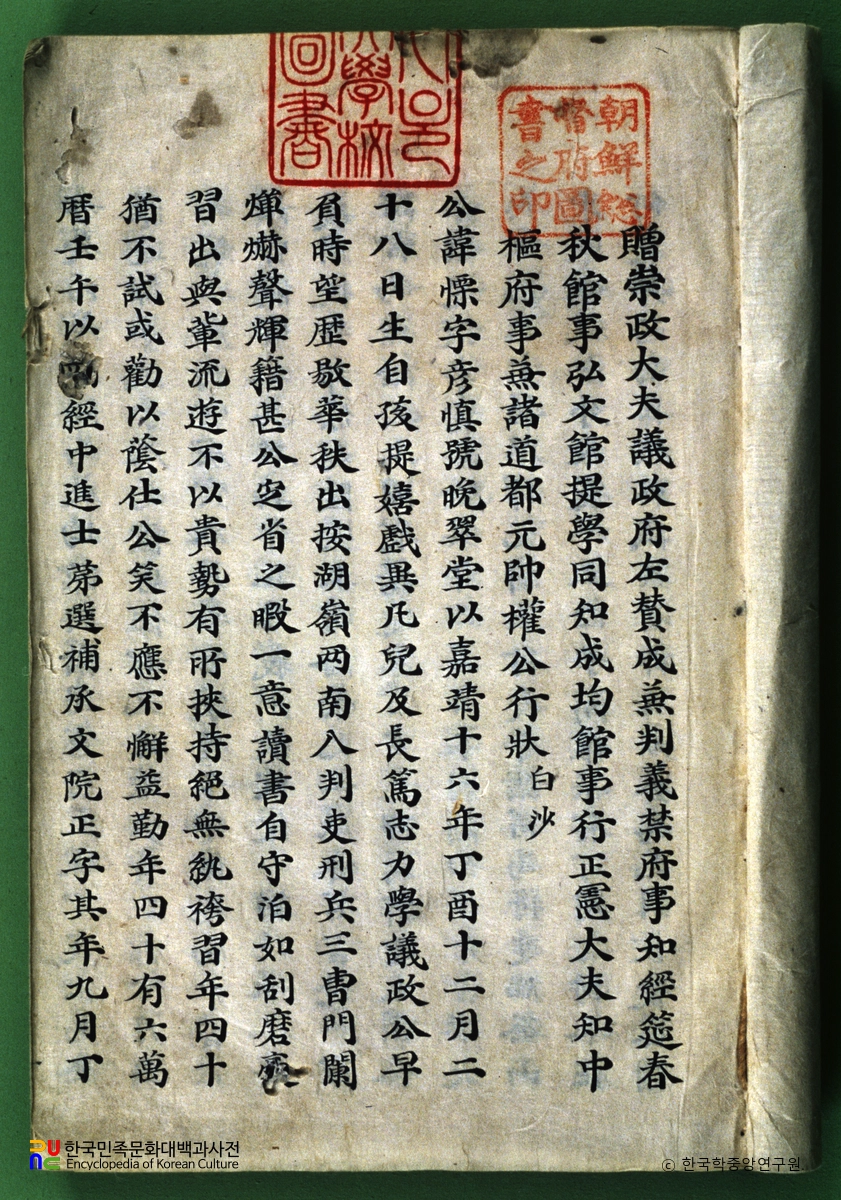 朝鮮総
督府圖
書之印
學校
圖書
贈崇政大夫議政府左贊成兼判義禁府事知經筵春
秋館事弘文館提學同知成均館事行正憲大夫知中
樞府事兼諸道都元帥權公行狀 白沙
公諱慄字彦愼號晩翠堂以嘉靖十六年丁酉十二月二
十八日生自孩提嬉戲異凡兒及長篤志力學議政公早
負時望歷敭華秩出按湖嶺两南八判吏刑兵三曺門闌
燀爀聲輝籍甚公定省之暇一意讀書自守泊如刮磨
習出與軰流遊不以貴勢有所挾持絕無紈袴習年四十
猶不試或勸以蔭仕公笑不應不懈益勤年四十有六萬
曆壬午以 經中進士苐選補承文院正字其年九月丁
한국민족문화대백과사전
Encyclopedia of Korean Culture
ⓒ 한국학중앙연구원